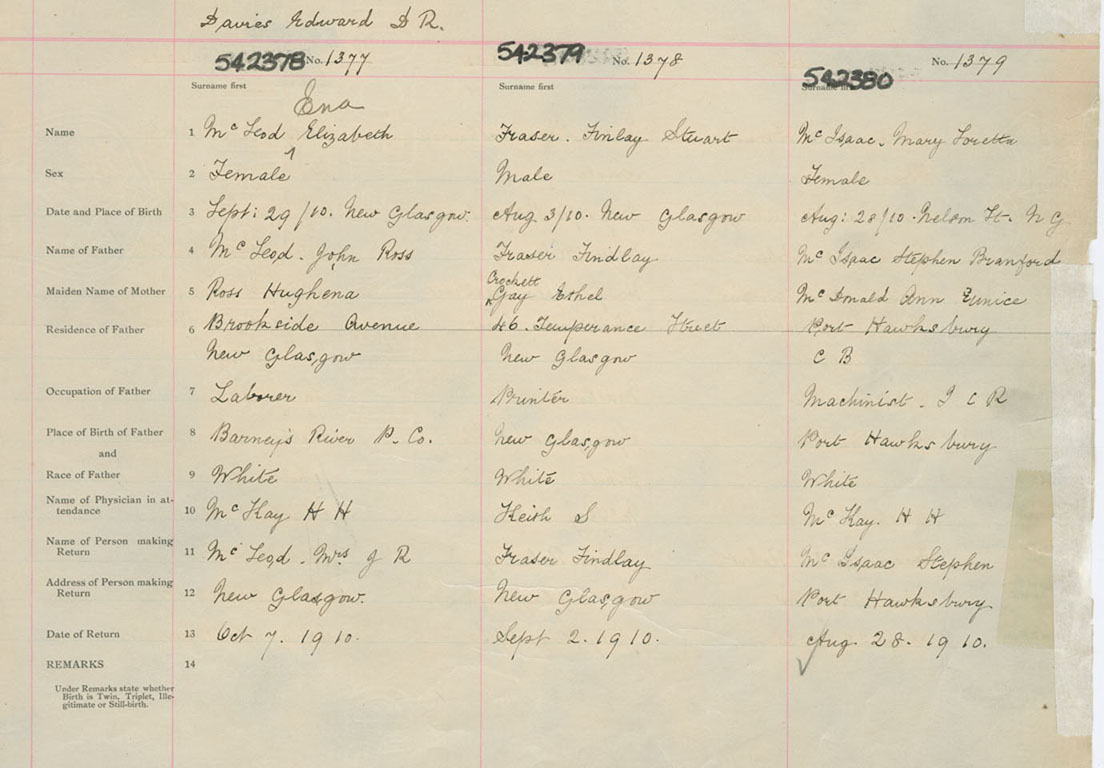 Davies Edward D R.
542378 No. 1377 542379 No. 1378 542380 No. 1379
Surname first Surname first Surname first
Ena
Name 1 Mc Leod Elizabeth Fraser. Finlay Stuart Mc Isaac. Mary Loretta
Sex 2 Female Male Female
Date and Place of Birth 3 Sept: 29/10. New Glasgow. Aug 3/10. New Glasgow Aug: 28/10. Nelson St. N G
Name of Father 4 Mc Leod. John Ross Fraser Findlay Mc Isaac Stephen Branford
Crockett
Maiden Name of Mother 5 Ross Hughena Gay Ethel Mc Donald Ann Eunice
Residence of Father 6 Brookside Avenue 46. Temperance Street Port Hawksbury
New Glasgow New Glasgow C B
Occupation of Father 7 Laborer Printer Machinist. I C R
Place of Birth of Father 8 Barney's River P. Co. New Glasgow Port Hawksbury
and
Race of Father 9 White White White
Name of Physician in at-
tendance 10 Mc Kay H H Keith S Mc Kay. H H
Name of Person making
Return 11 Mc Leod. Mrs. J R Fraser Findlay Mc Isaac Stephen
Address of Person making
Return 12 New Glasgow. New Glasgow Port Hawksbury
Date of Return 13 Oct 7. 1910. Sept 2. 1910. Aug 28. 1910.
REMARKS 14
Under Remarks state whether
Birth is Twin, Triplet, Ille-
gitimate or Still-birth.